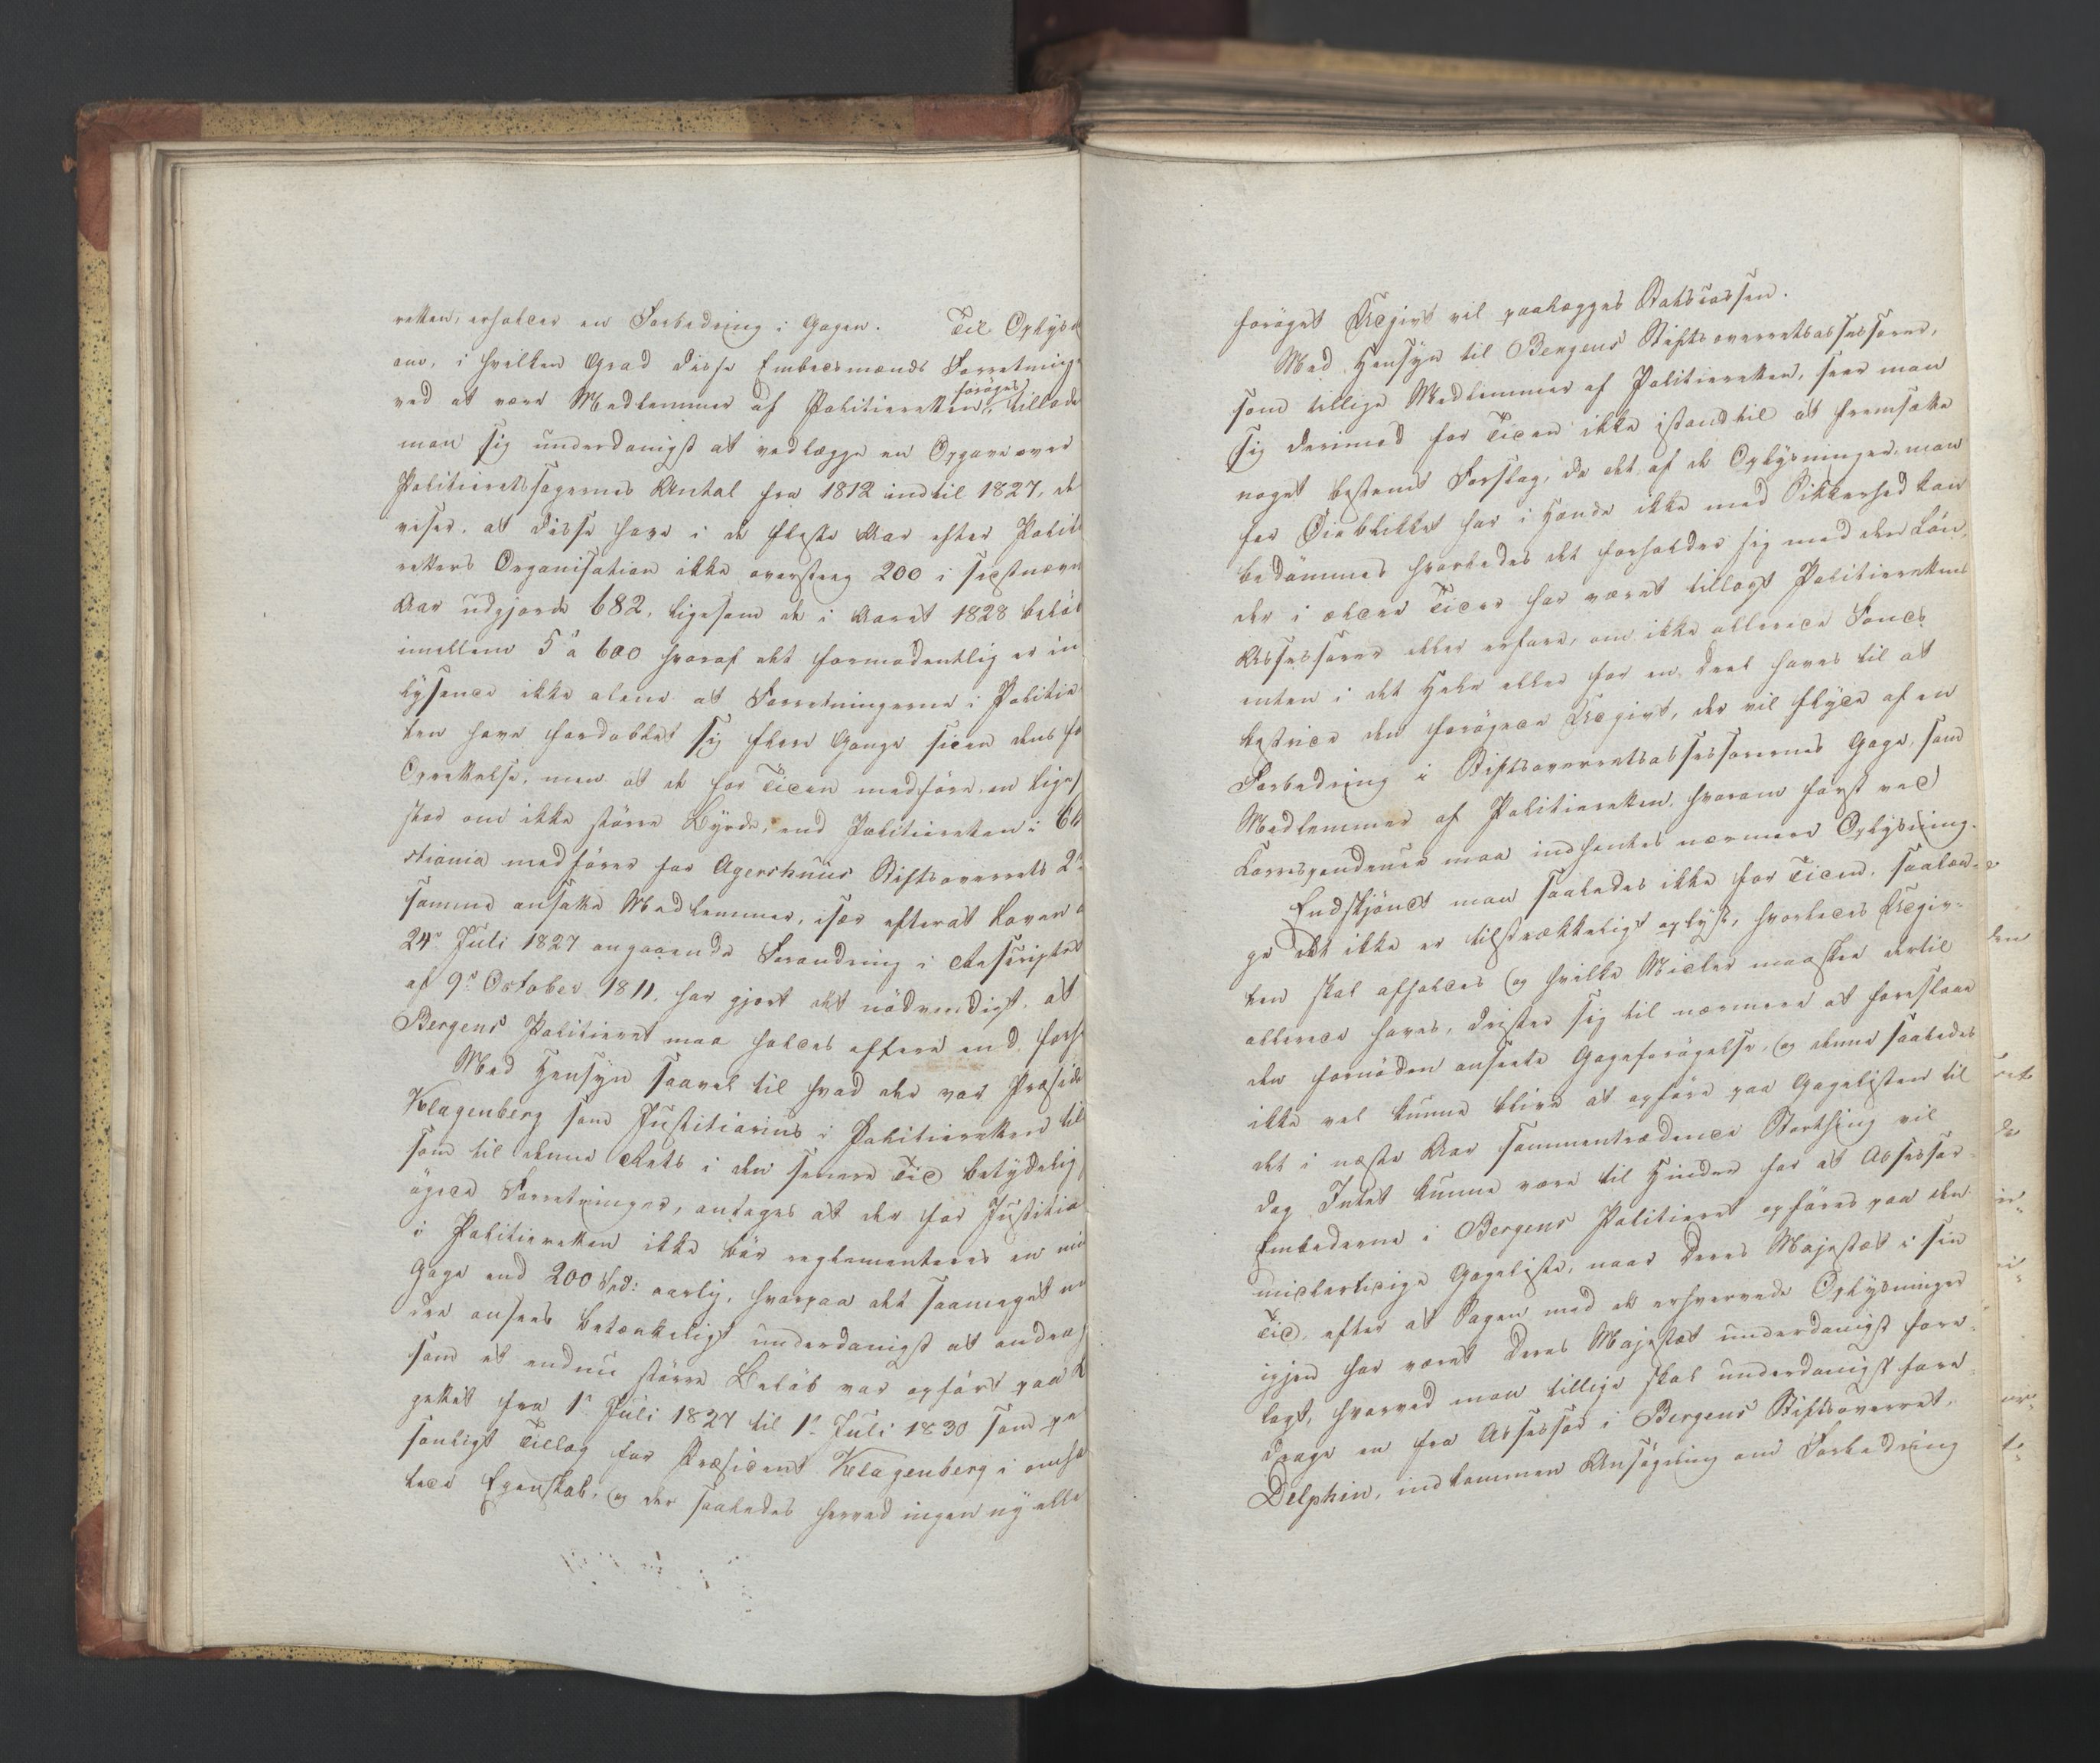 retten, erholder en Forbedring i Gagen. Til Oplys
om, i hvilken Grad disse Embedsmænds Forretninge
ved at være Medlemmer af Politieretten, forøges, tillade
man sig underdanigst at vedlægge en Opgave over
Politieretssagernes Antal fra 1812 indtil 1827, de
viser, at disse have i de fleste Aar efter Politie
rettens Organisation ikke oversteeg 200 i sidstnævn
Aar udgjorde 682, ligesom de i Aaret 1828 beløb
imellem 5 a 600 hvoraf det formodentlig er in
lysende ikke alene at Forretningerne i Politie
ten have fordoblet sig flere Gange siden dens fø
Oprettelse, men at de for Tiden medføre en lige s
stor om ikke større Byrde, end Politieretten i Ch
stiania medfører for Agershuus Stiftsoverrets 2de
samme ansatte Medlemmer, især efterat Loven a
24de Juli 1827 angaaende Forandring i Rescriptet
af 9de October 1811, har gjort det nødvendigt, at
Bergens Politieret maa holdes oftere end før
Med Hensyn saavel til hvad der var Præside
Klagenberg som Justitiarius i Politieretten til
som til denne Rets i den senere Tid betydelig
øgede Forretninger, antages at der for Justitia
i Politieretten ikke bør reglementeres en min
Gage end 200 Spd: aarlig, hvorpaa det saameget m
dre ansees betænkeligt underdanigst at andra
som et endnu større Beløb var opført paa B
gettet fra 1de Juli 1827 til 1de Juli 1830 som pe
sonligt Tillæg for Præsident Klagenberg i omha
lede Egenskab, og der saaledes herved ingen ny elle
forøget Udgivt vil paalægges Statscassen.
Med Hensyn til Bergens Stiftsoverretsassessorer,
som tillige Medlemmer af Politieretten, seer man
sig derimod for Tiden ikke istand til at fremsætte
noget bestemt Forslag, da det af de Oplysninger, man
for Øieblikket har i Hænde ikke med Sikkerhed kan
bedømmes hvorledes det forholder sig med den Løn,
der i ældre Tider har været tillagt Politierettens
Assessorer eller erfare, om ikke allerede Fonds
enten i det Hele eller for en Deel haves til at
bestride den forøgede Udgivt, der vil flyde af en
Forbedring i Stiftsoverretsassessorernes Gage, som
Medlemmer af Politieretten, hvorom først ved
Correspondence maa indhentes nærmere Oplysning.
Endskjøndt man saaledes ikke for Tiden, saalæn-
ge det ikke er tilstrækkeligt oplyst, hvorledes Udgiv-
ten skal afholdes og hvilke Midler maaskee dertil
allerede haves, drister sig til nærmere at foreslaae
den fornøden anseete Gageforøgelse, og denne saaledes
ikke vel kunne blive at opføre paa Gagelisten til
det i næste Aar sammentrædende Storthing vil
dog Intet kunne være til Hinder for at Assessor-
Embederne i Bergens Politieret opføres paa den
midlertidige Gageliste, naar Deres Majestæt i sin
Tid, efter at Sagen med de erhvervede Oplysninger
igjen har været Deres Majestæt underdanigst fore-
lagt, hvorved man tillige skal underdanigst fore-
drage en fra Assessor i Bergens Stiftsoverret,
Delphin, indkommen Ansøgning om Forbedring